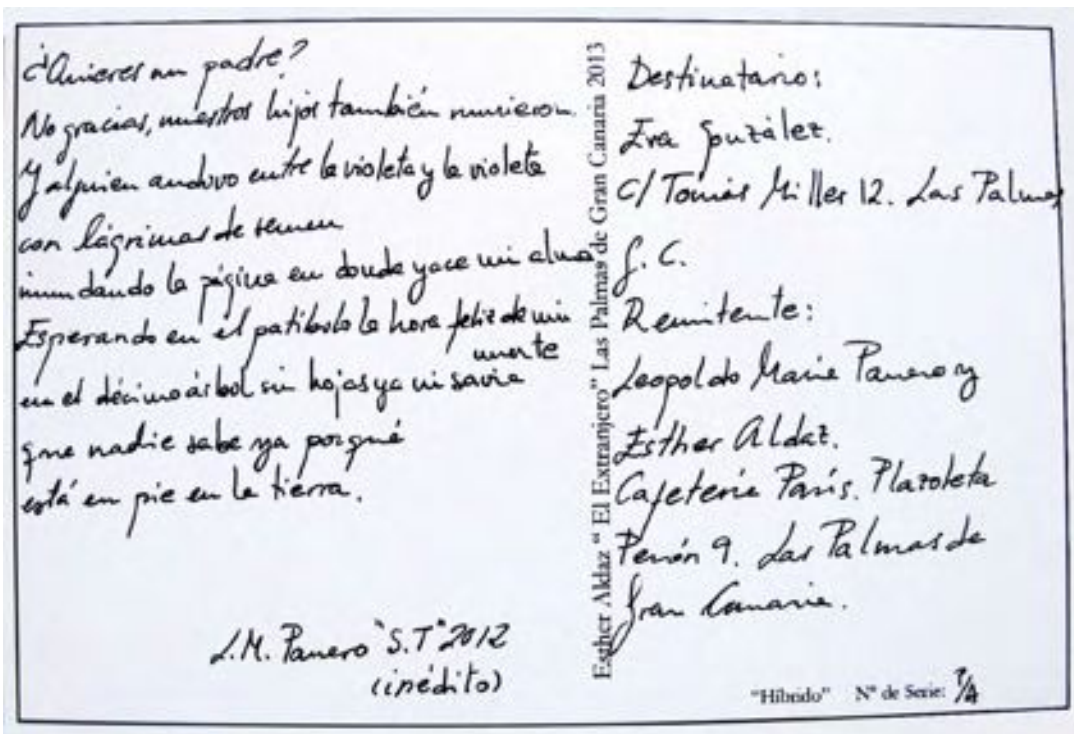 ¿Quieres un padre?
No gracias, nuestros hijos también murieron.
Y alguien anduvo entre la violeta y la violeta
con lágrimas de semen
inundando la página en donde yace mi alma
Esperando en el patíbulo la hora feliz de mi
muerte
en el décimo árbol sin hojas ya ni savia
que nadie sabe ya porqué
está en pie en la tierra.
L.M. Panero "S.T" 2012
(inédito)
Esther Aldaz "El Extranjero" Las Palmas de Gran Canaria 2013
Destinatario:
Eva González.
C/ Tomás Miller 12. Las Palmas
G. C.
Remitente:
Leopoldo María Panero y
Esther Aldaz.
Cafetería París. Plazoleta
Perón 9. Las Palmas de
Gran Canaria.
"Híbrido" Nº de Serie: